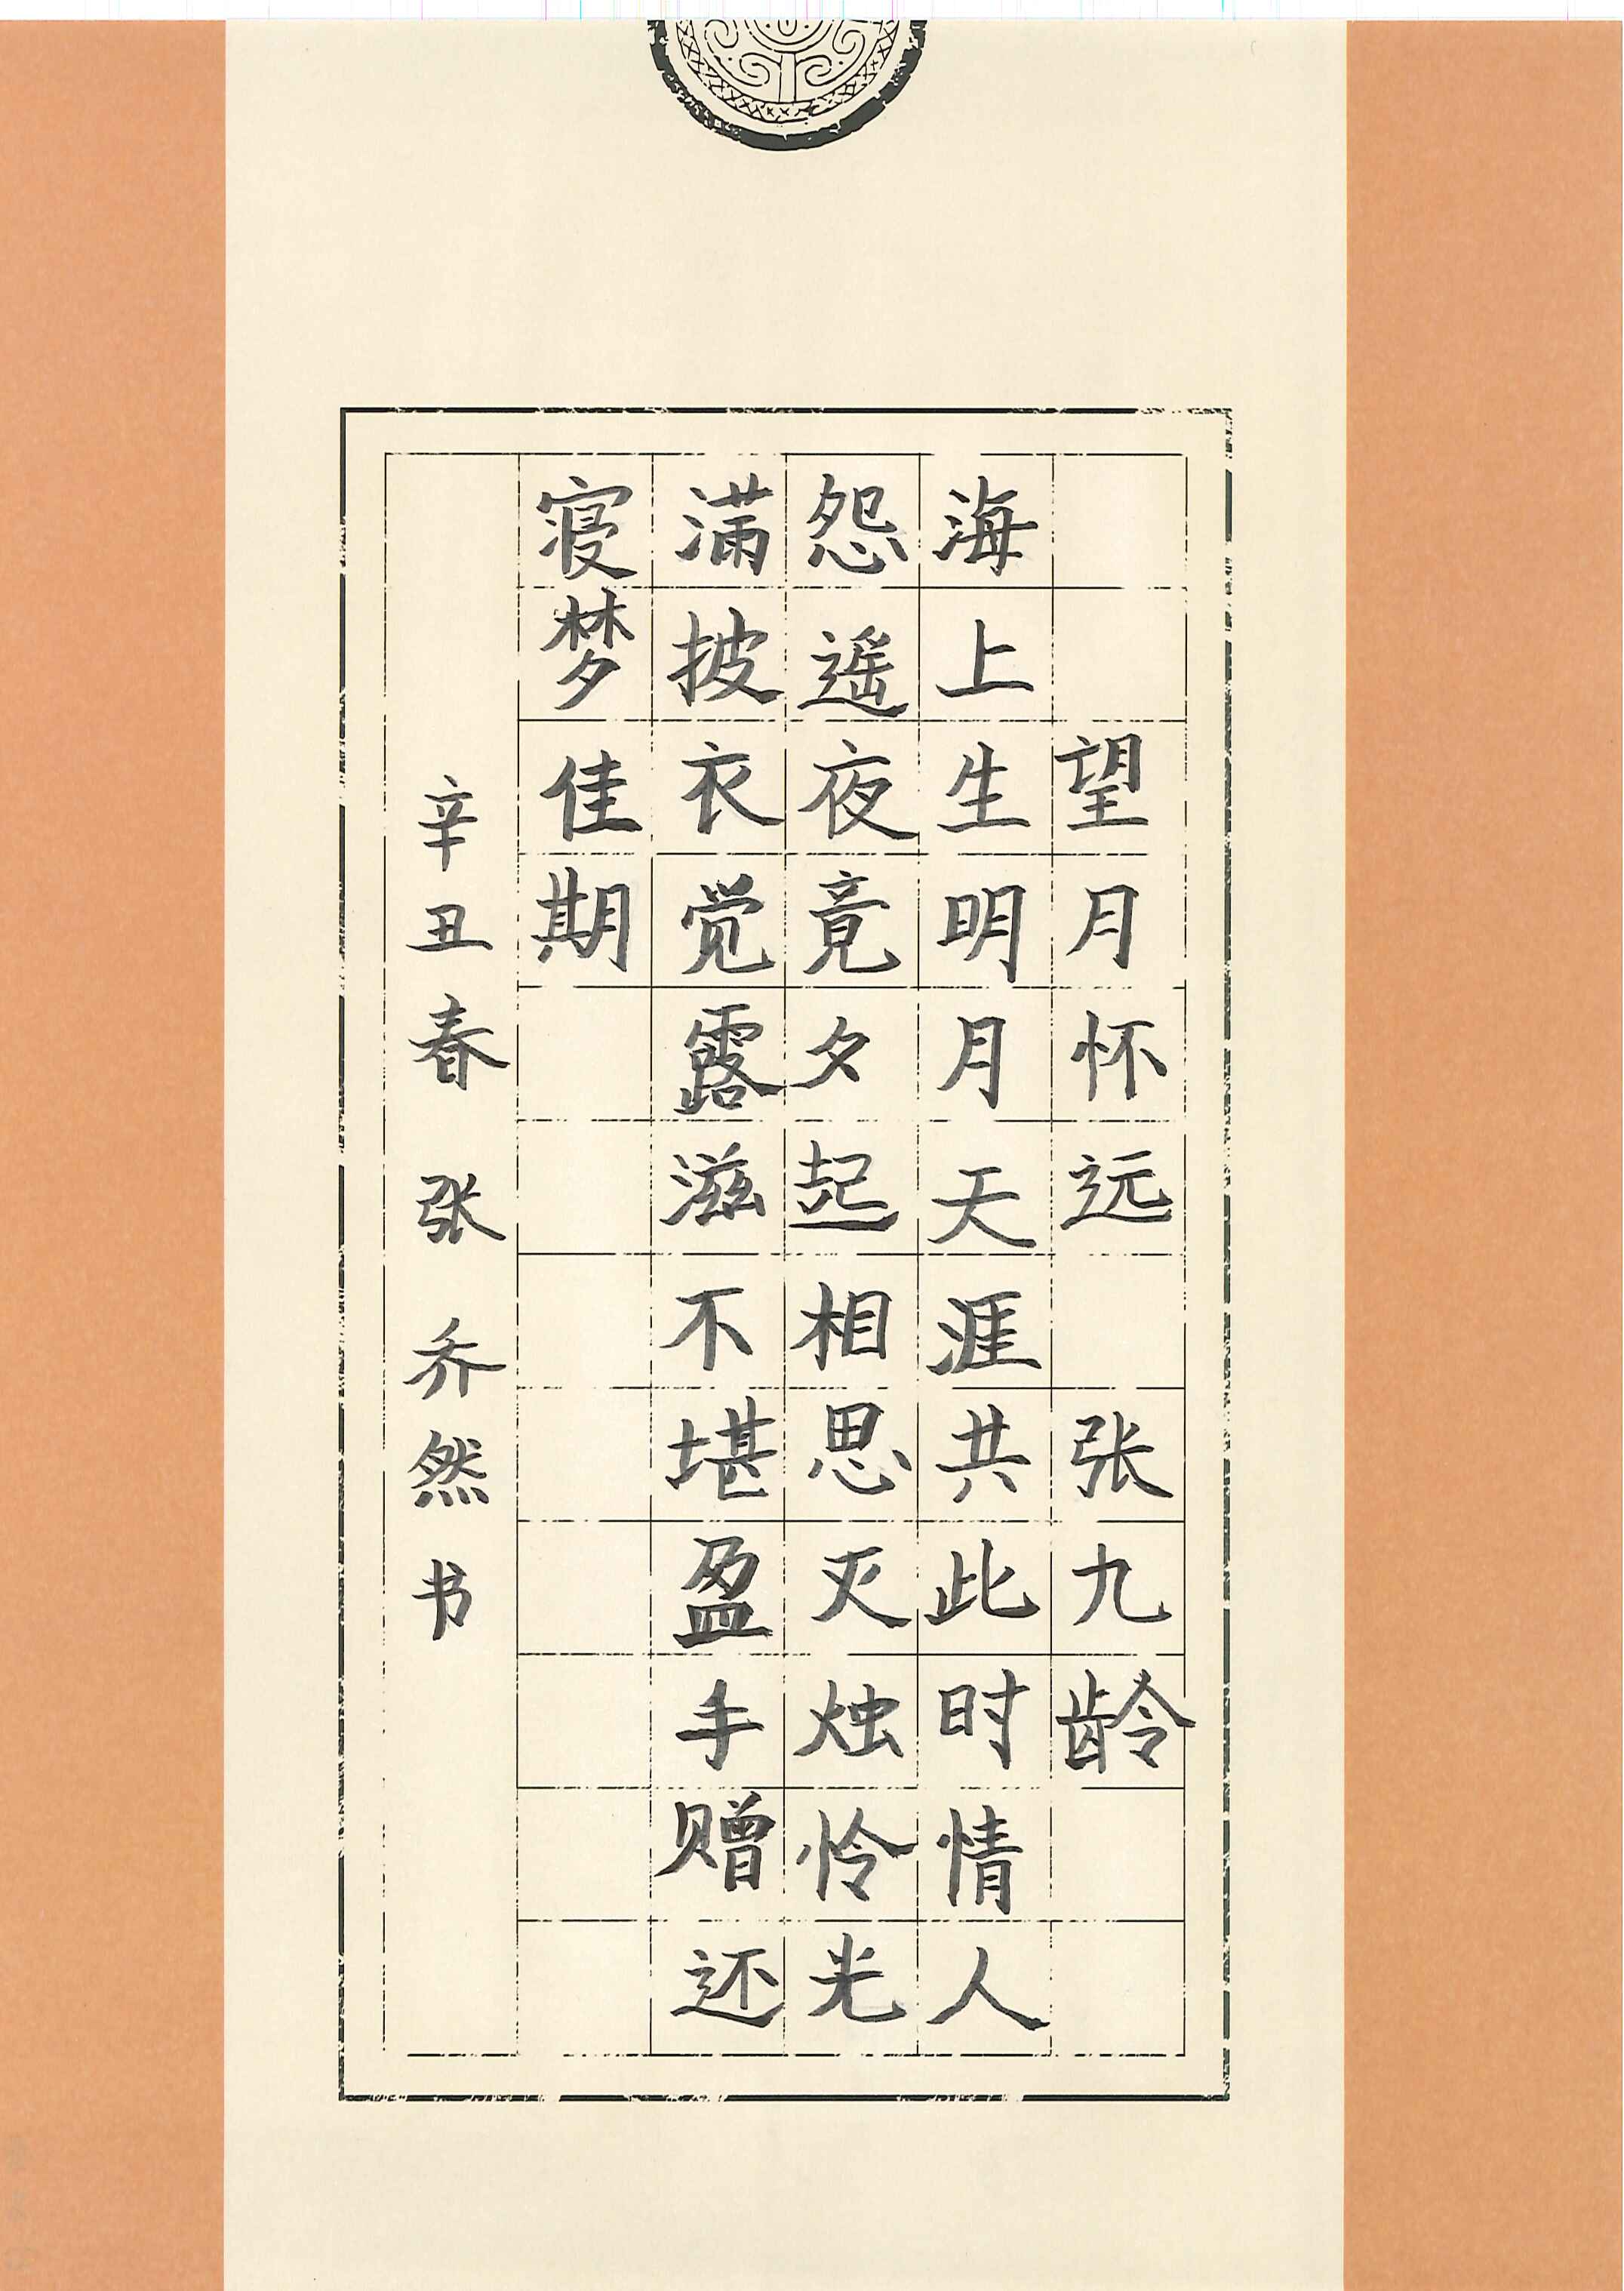 望月怀远 张九龄
海上生明月天涯共此时情人
怨遥夜竟夕起相思灭烛怜光
满披衣觉露滋不堪盈手赠还
寝梦佳期
辛丑春 张乔然书